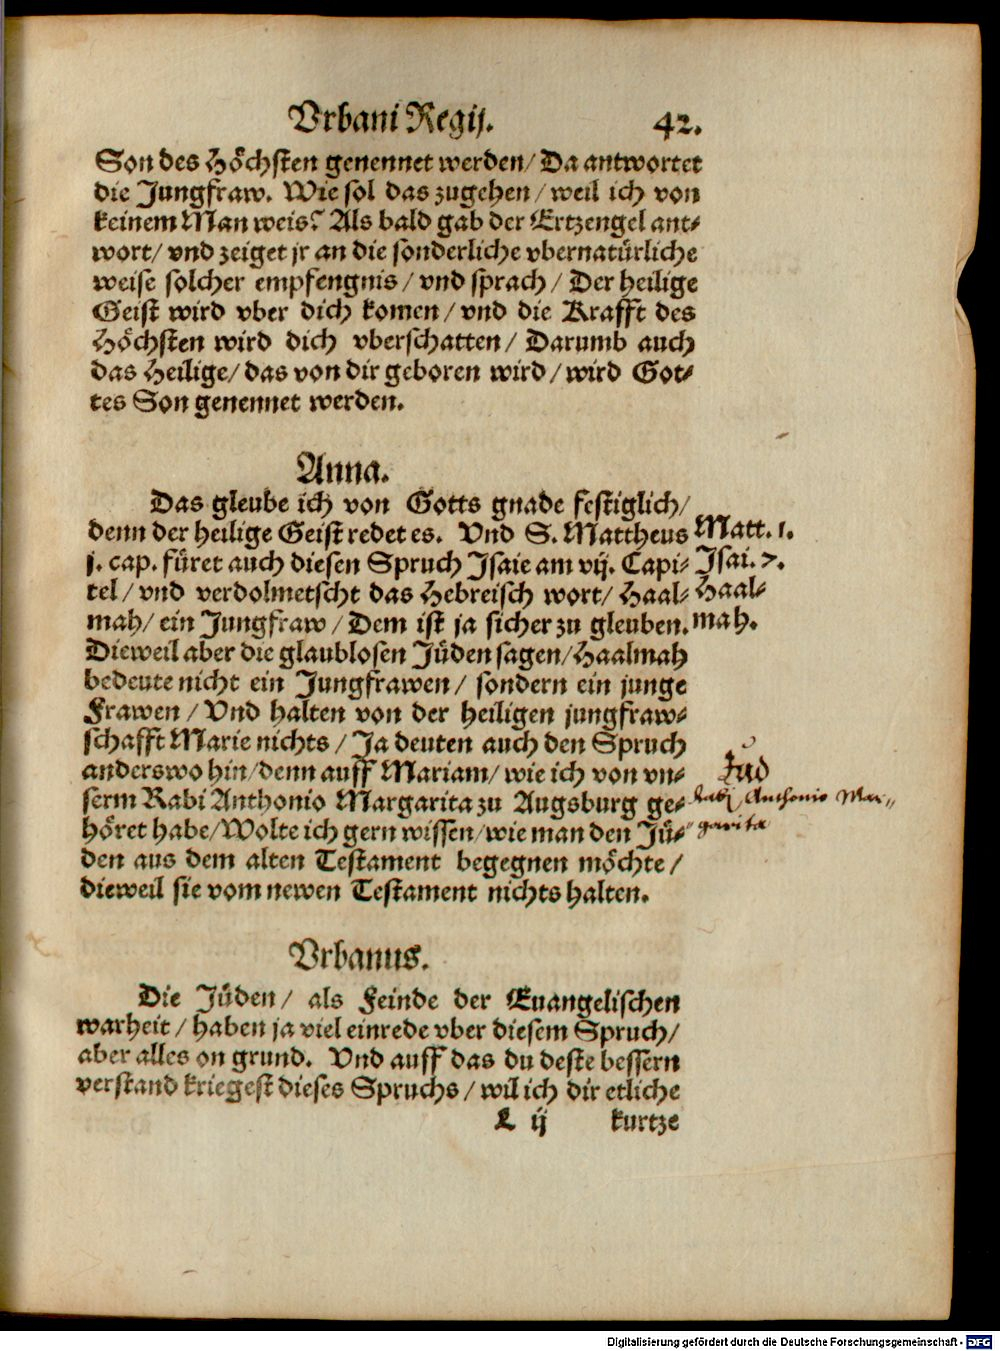 Vrbani Regij. 42.
Son des Höchsten genennet werden/ Da antwortet
die Jungfraw. Wie sol das zugehen/ weil ich von
keinem Man weis? Als bald gab der Ertzengel ant-
wort/ vnd zeiget jr an die sonderliche vbernatürliche
weise solcher empfengnis/ vnd sprach/ Der heilige
Geist wird vber dich komen/ vnd die Krafft des
Höchsten wird dich vberschatten/ Darumb auch
das Heilige/ das von dir geboren wird/ wird Got-
tes Son genennet werden.
Anna.
Das gleube ich von Gotts gnade festiglich/
denn der heilige Geist redet es. Vnd S. Mattheus
j. cap. füret auch diesen Spruch Isaie am vij. Capi-
tel/ vnd verdolmetscht das Hebreisch wort/ Haal-
mah/ ein Jungfraw/ Dem ist ja sicher zu gleuben.
Matt. 1.
Isai. 7.
Haal-
mah.
Dieweil aber die glaublosen Jüden sagen/ Haalmah
bedeute nicht ein Jungfrawen/ sondern ein junge
Frawen/ Vnd halten von der heiligen jungfraw-
schafft Marie nichts/ Ja deuten auch den Spruch
anderswo hin/ denn auff Mariam/ wie ich von vn-
serm Rabi Anthonio Margarita zu Augsburg ge-
höret habe/ Wolte ich gern wissen/ wie man den Jü-
den aus dem alten Testament begegnen möchte/
dieweil sie vom newen Testament nichts halten.
Jud
Rabi Anthonio Mar-
garita
Vrbanus.
Die Jüden/ als Feinde der Euangelischen
warheit/ haben ja viel einrede vber diesem Spruch/
aber alles on grund. Vnd auff das du deste bessern
verstand kriegest dieses Spruchs/ wil ich dir etliche
L ij kurtze
Digitalisierung gefördert durch die Deutsche Forschungsgemeinschaft - DFG